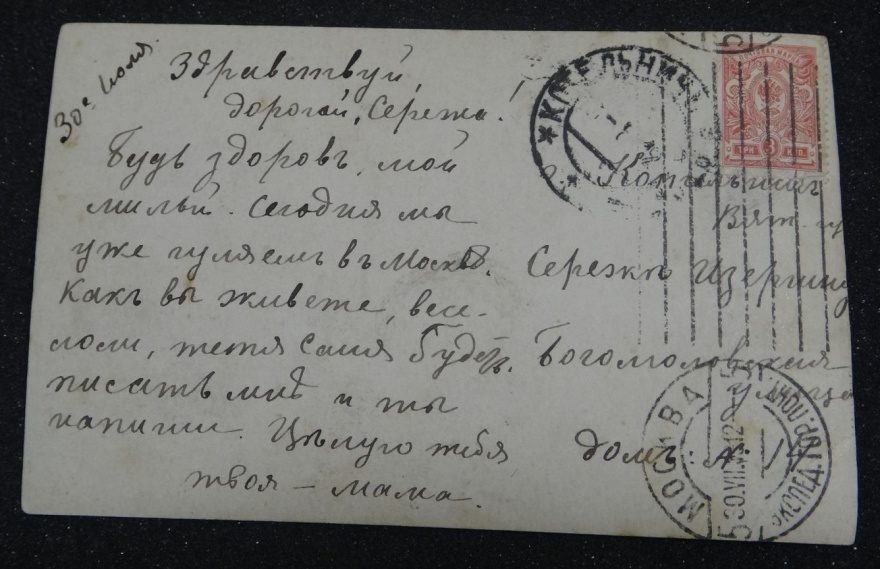 30е Iюля.
Здравствуй,
дорогой, Сережа!
Будь здоровъ, мой
милый. Сегодня мы
уже гуляемъ въ Москвѣ.
Какъ вы живете, весе-
ло ли, тетя Саня будетъ
писать мнѣ и ты
напиши. Цѣлую тебя
твоя - мама.
г. Котельничъ
Вят. гу
Сережѣ
Богомоловская
улица
домъ №
КОТЕЛЬНИЧЪ
ТРИ 3 КОП
МОСКВА
5 30.VII.12
ЭКСПЕД. ГОР. ПОЧТ
5